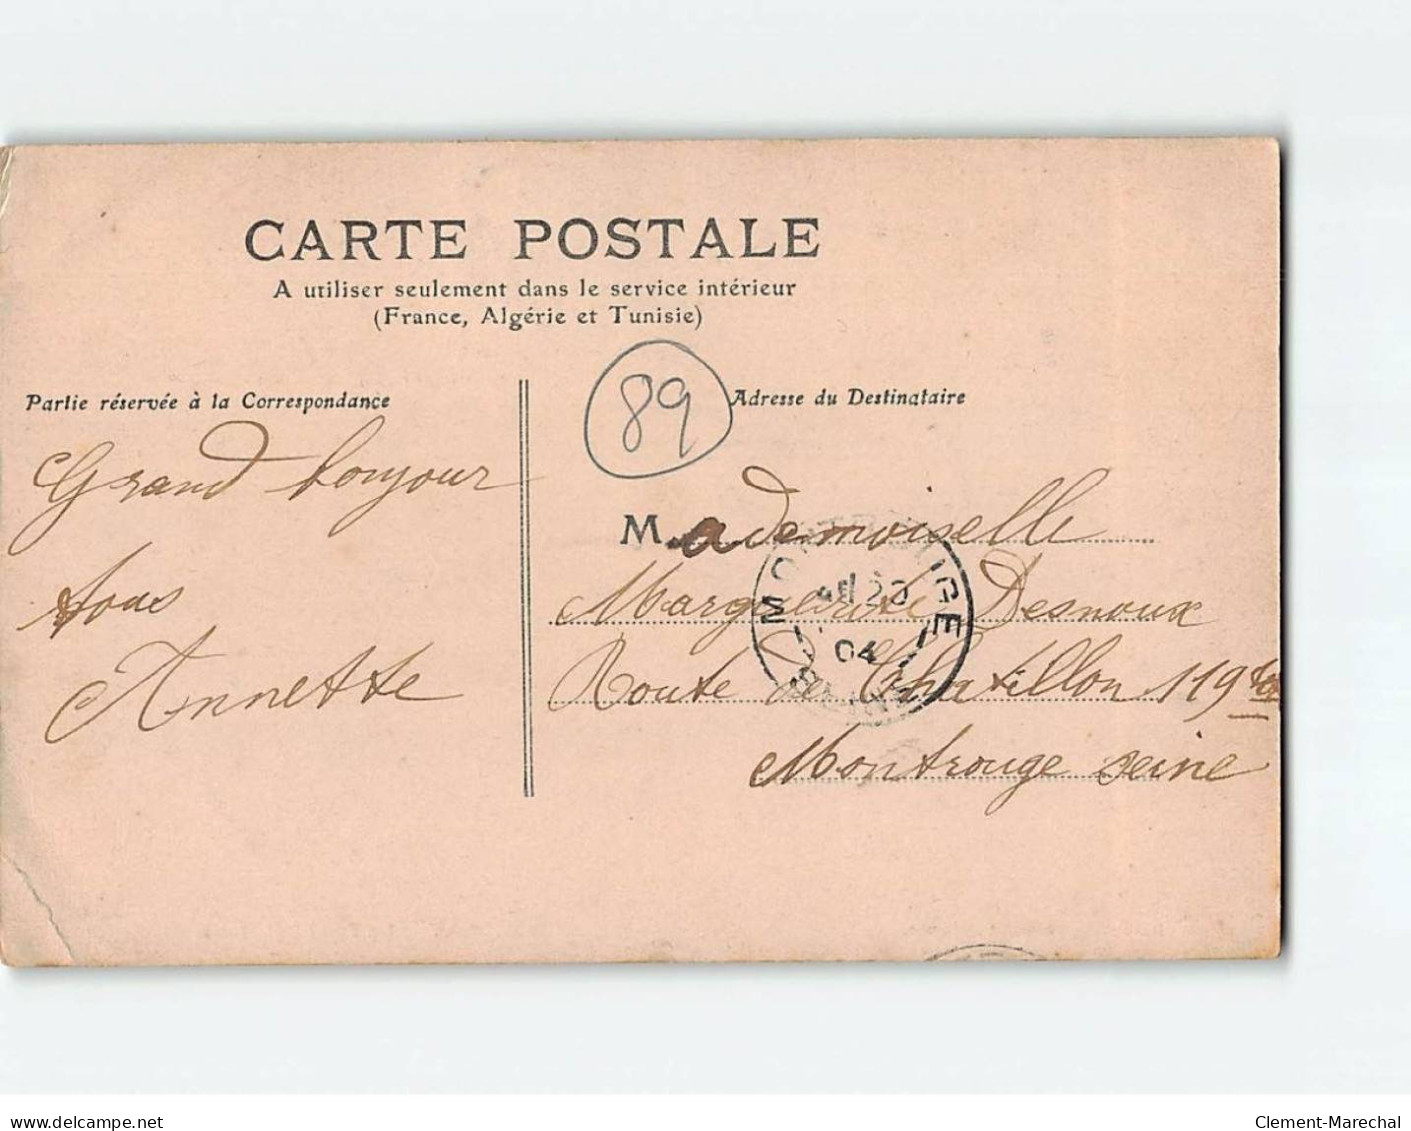 CARTE POSTALE
A utiliser seulement dans le service intérieur
(France, Algérie et Tunisie)
89
Partie réservée à la Correspondance
Grand bonjour
tous
Annette
Adresse du Destinataire
Mademoiselle
Marguerite Desnoux
Route de Chatillon 119
Montrouge Seine
MONTROUGE
20
04
SEINE
www.delcampe.net
Clement-Marechal